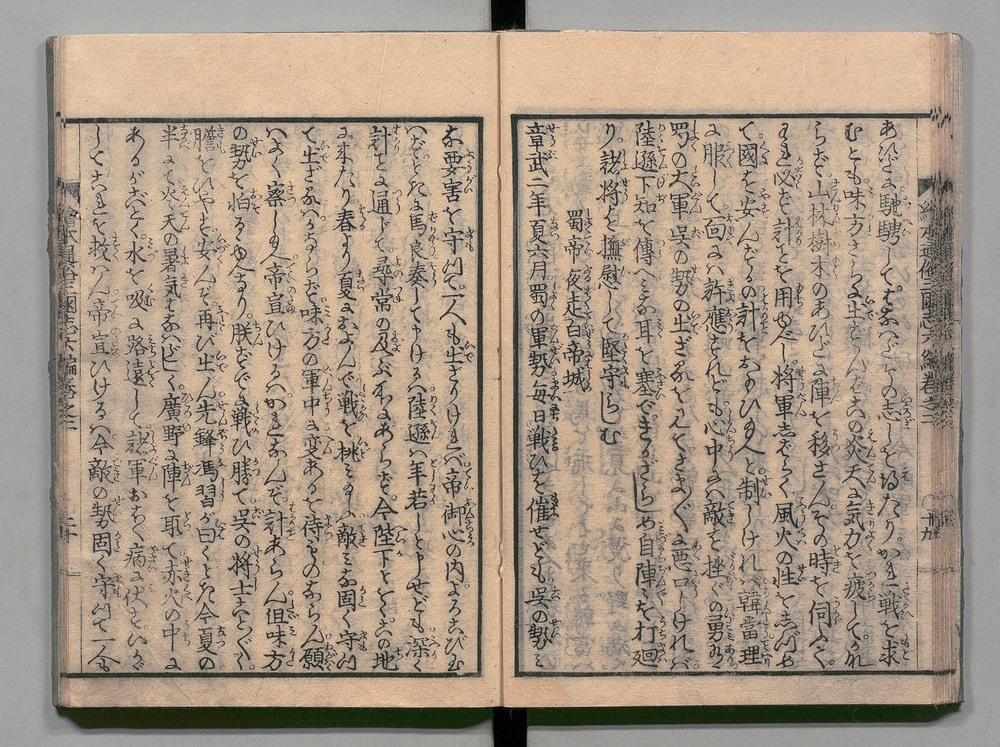 あひだに馳騁して、はなはだその志しをゑたり、かれ戦を求
むとも味方さらに出ることなくんば、この炎天に気力を疲してかな
らず山林樹木のあひだに陣を移さん、その時を伺ふてこ
れ必ず計ことを用ゆべし、将軍しばらく風火の性をしづめ
て國を安んずるの計をおもひ給へと制しければ、韓當理
に服して面には許應すれども心中には敵を挫ぐの勇みあり
蜀の大軍呉の勢の出ざるをみてさまざまに悪口しければ
陸遜下知を傳へみな耳を塞できかざらしめ自陣々を打廻
り諸将を撫慰して堅守らしむ
蜀帝夜走白帝城
章武二年夏六月蜀の軍勢毎日戦ひを催せども呉の勢み
な要害を守って一人も出ざりければ、帝御心の内よろこび玉
はず、ときに馬良奏してまうけるは、陸遜は年若しとまうせども深く
計ことに通じて尋常の及ぶ所にあらず、今陛下とをくこの地
に来たり春より夏におよんで戦を挑み玉ふに、敵みな固く守つ
て出ざるはかならず味方の軍中に変あるを待ものならん、願
はくは察し給へ、帝宣ひけるは、かれなんぞ計あらん、但味方
の勢を怕るるゆゑなり、朕までに戦ひ勝て呉の将士ことごとく
膽をひやせり、安んぞ再び出ん、先鋒馮習が曰く、ときに今夏の
半にて火天の暑気はなはだしく、廣野に陣を取て赤火の中に
あるがごとく、水を汲に路遠して諸軍おほく病に伏せり、いかが
してこれを救はん、帝宣ひけるは、今敵の勢固く守って一人も
繪本通俗三國志六編巻之二
繪本通俗三國志六編巻之二